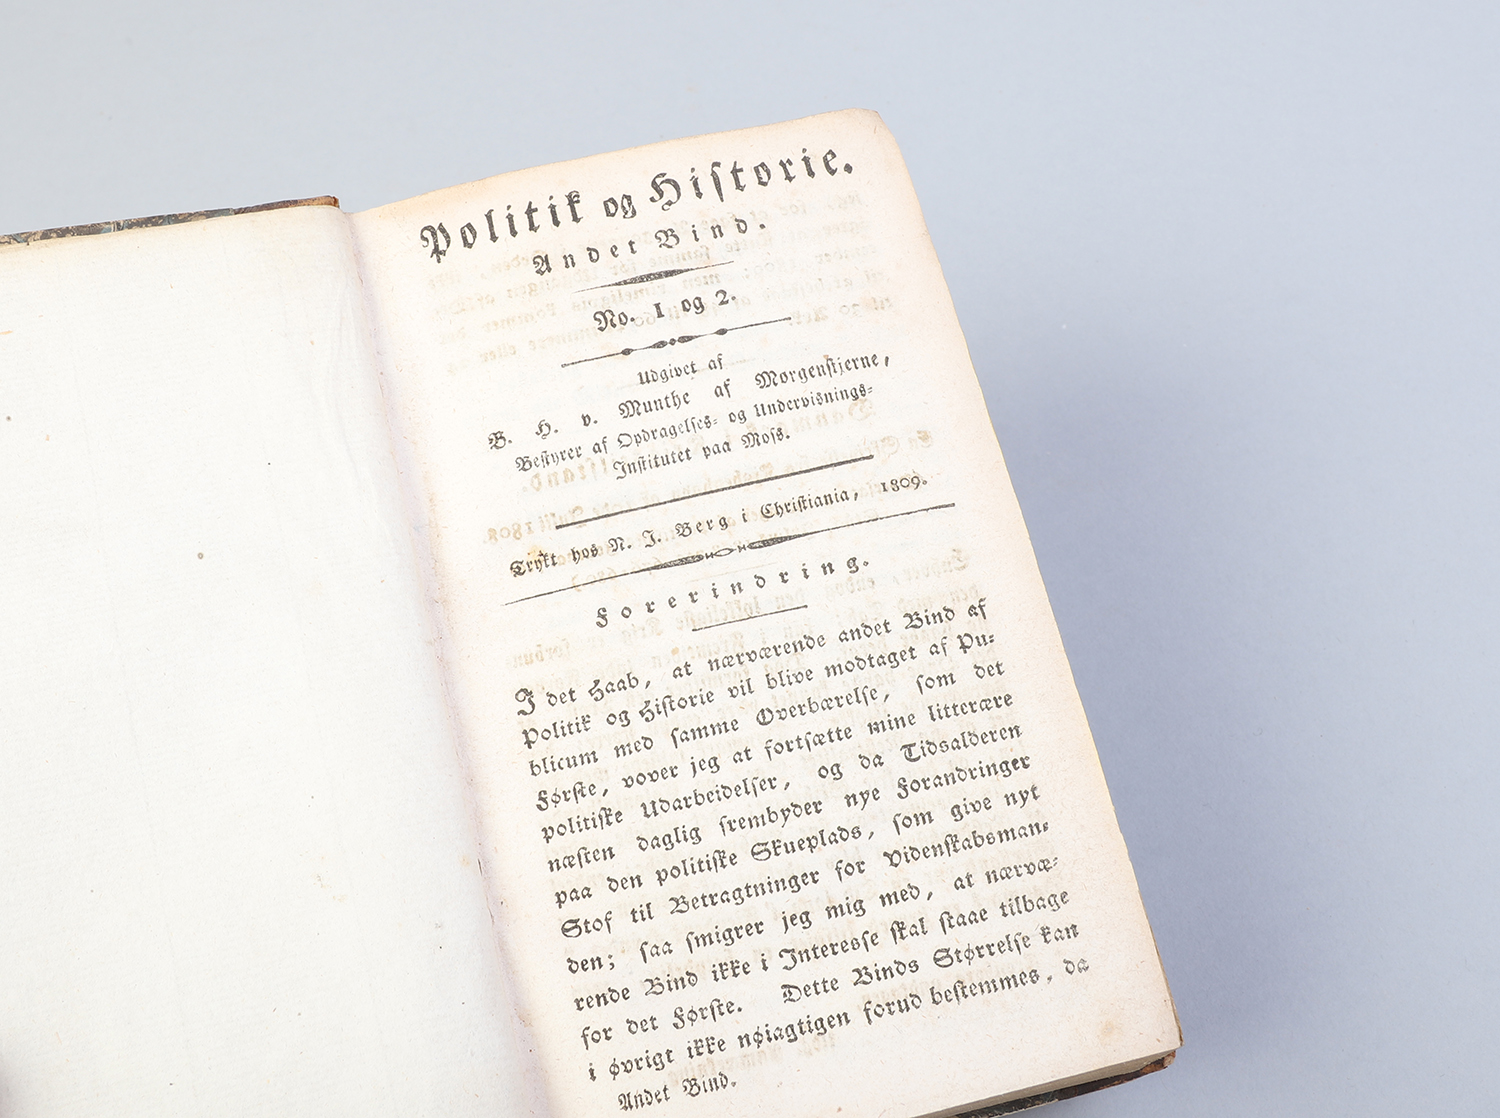 Politik og Historie.
Andet Bind.
No. 1 og 2.
Udgivet af
B. H. v. Munthe af Morgenstjerne,
Bestyrer af Opdragelses- og Undervisnings-
Institutet paa Moss.
Trykt hos N. J. Berg i Christiania, 1809.
Forerindring.
I det Haab, at nærværende andet Bind af
Politik og Historie vil blive modtaget af Pu-
blicum med samme Overbærelse, som det
Første, vover jeg at fortsætte mine litterære
politiske Udarbeidelser, og da Tidsalderen
næsten daglig frembyder nye Forandringer
paa den politiske Skueplads, som give nyt
Stof til Betragtninger for Videnskabsman-
den; saa smigrer jeg mig med, at nærvæ-
rende Bind ikke i Interesse skal staae tilbage
for det Første. Dette Binds Størrelse kan
i øvrigt ikke nøiagtigen forud bestemmes, da
Andet Bind.